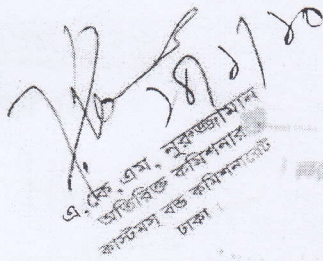 ২৭/১/২০
এ. কে. এম. নুরুজ্জামান
অতিরিক্ত কমিশনার
কাস্টমস বন্ড কমিশনারেট
ঢাকা।